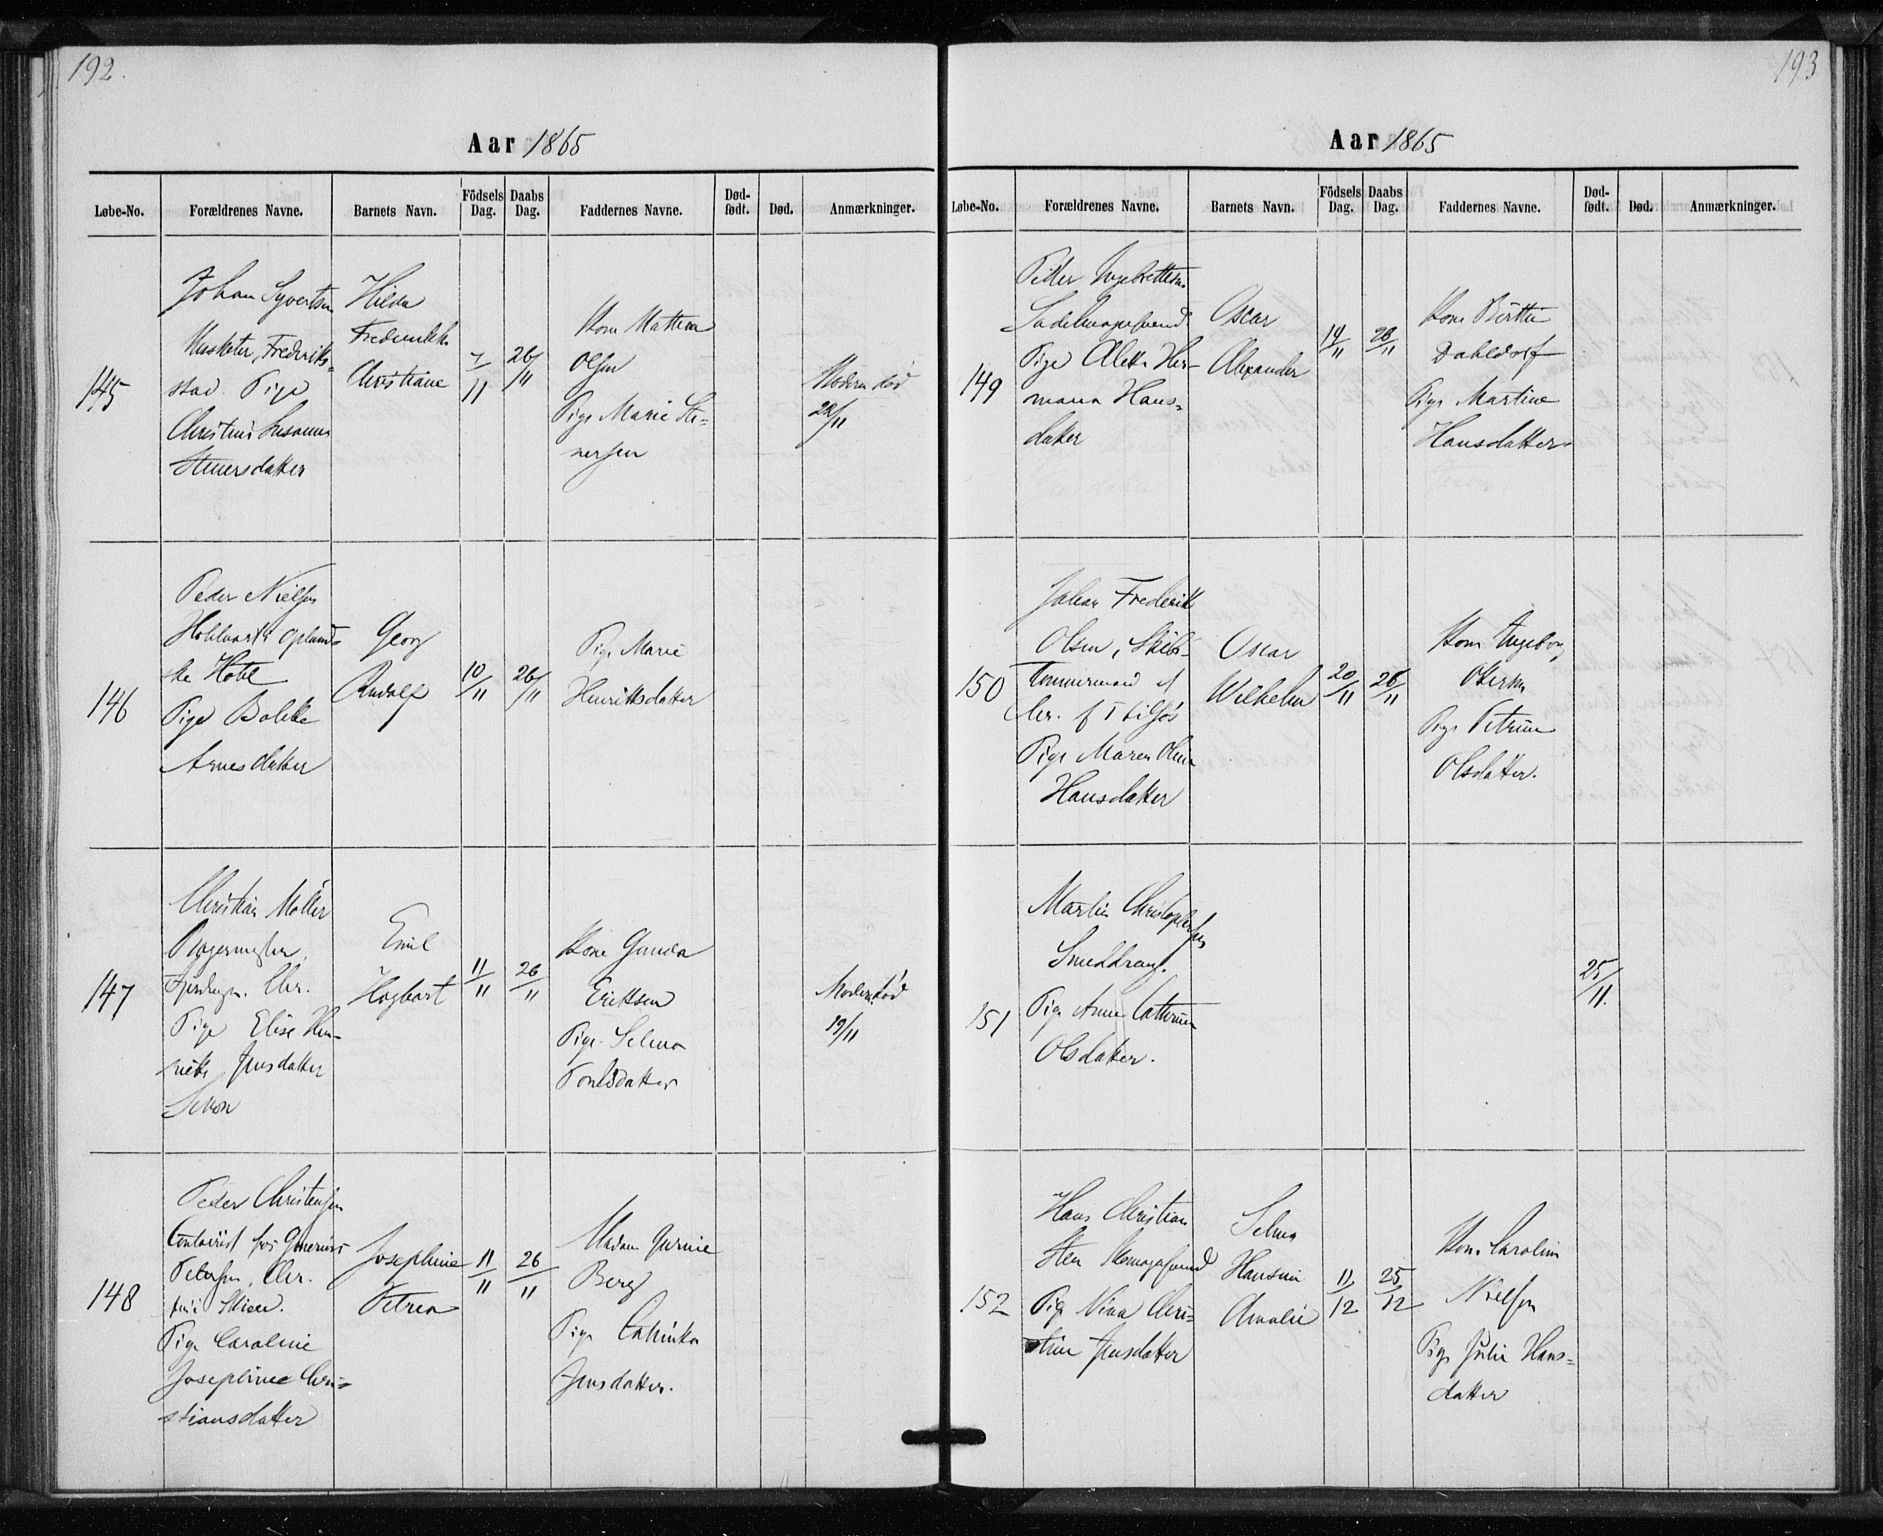 192.
Aar 1865
Løbe-No. Forældrenes Navne. Barnets Navn. Födsels Dag. Daabs Dag. Faddernes Navne. Død-født. Død. Anmærkninger.
145
Johan Syvertsen
Musketer, Frederiks-
stad. Pige
Christine Susanne
Stenersdatter
Hilda
Fredrikke
Christiane
7/11
26/11
Kone Mathea
Olsen
Pige Marie Ste-
nersen
Moderen død
22/11
146
Peder Nielsen
Oplands-
ske Hotel
Pige Bolette
Arnesdatter
Georg
Rudolf
10/11
26/11
Pige Marie
Henriksdatter
147
Christian Møller
Pige Elise Hen-
riette Jensdatter
Emil
Hagbart
11/11
26/11
Kone Gunda
Eriksen
Pige Selma
Poulsdatter
Moderen død
19/11
148
Peder Christensen
Contorist hos
Petersen, Chr.
Pige Caroline
Josephine Chri-
stiansdatter
Josephine
Petrea
11/11
26/11
Madam
Berg
Pige Cathinka
Jensdatter.
193
Aar 1865
Løbe-No. Forældrenes Navne. Barnets Navn. Födsels Dag. Daabs Dag. Faddernes Navne. Død-født. Død. Anmærkninger.
149
Peder Ingebretsen
Sadelmagersvend
Pige Alette Her-
mana Hans-
datter
Oscar
Alexander
14/11
26/11
Kone Berthe
Dahldorf
Pige Martine
Hansdatter
150
Johan Frederik
Olsen, Skibs-
tømmermand
Pige Maren Oline
Hansdatter
Oscar
Wilhelm
20/11
26/11
Kone Ingeborg
Pige Petrine
Olsdatter.
151
Martin Christophersen
Smeddreng.
Pige Anne Cathrine
Olsdatter.
25/11.
152
Hans Christian
Sten Skomagersvend
Pige Nina Chri-
stine Jensdatter
Selma
Hansine
Amalie
11/12
25/12
Kone Caroline
Nielsen
Pige Julie Hans-
datter